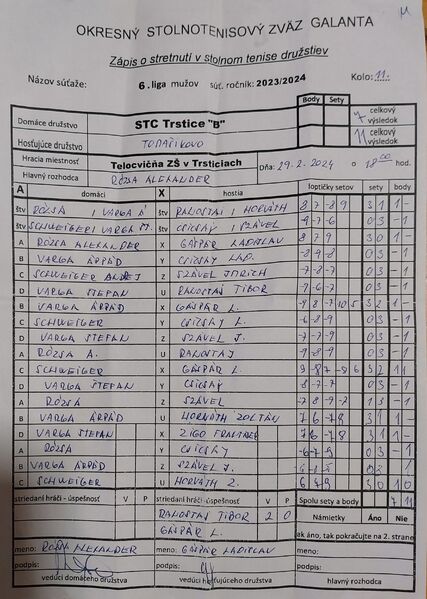 OKRESNÝ STOLNOTENISOVÝ ZVÄZ GALANTA
Zápis o stretnutí v stolnom tenise družstiev
Názov súťaže: 6. liga mužov súť. ročník: 2023/2024 Kolo: 11.
Body Sety
Domáce družstvo STC Trstice "B" 7 celkový výsledok
Hosťujúce družstvo TOPAĽNÍKOVO 11 celkový výsledok
Hracia miestnosť Telocvičňa ZŠ v Trsticiach Dňa: 29.2.2024 o 18:00 hod.
Hlavný rozhodca RÓZSA ALEXANDER
A domáci X hostia loptičky setov sety body
štv RÓZSA / VARGA Á RANOSTAJ / HORVÁTH 8 7 -8 9 3 1 1 -
štv SCHWEIGER / VARGA Š. / SZÁVEL -9 -7 -6 0 3 - 1
A RÓZSA ALEXANDER X GAŠPÁR LADISLAV 8 7 9 3 0 1 -
B VARGA ÁRPÁD Y CSICSAY LAD. -8 -9 -8 0 3 - 1
C SCHWEIGER ANDEJ Z SZÁVEL 0 3 - 1
D VARGA ŠTEFAN U RANOSTAJ TIBOR -9 -8 -6 0 3 - 1
B VARGA ÁRPÁD X GAŠPÁR L. -9 8 -7 10 5 3 2 1 -
C SCHWEIGER Y CSICSAY L. -6 -8 -9 0 3 - 1
D VARGA ŠTEFAN Z SZÁVEL J. -7 -7 -9 0 3 - 1
A RÓZSA A. U RANOSTAJ -9 -8 -9 0 3 - 1
C SCHWEIGER X GAŠPÁR L. 3 2
D VARGA ŠTEFAN Y CSICSAY -8 -7 -7 0 3 - 1
A RÓZSA Z SZÁVEL 1 3 - 1
B VARGA ÁRPÁD U HORVÁTH ZOLTÁN 7 6 -7 8 3 1 1 -
D VARGA ŠTEFAN X 7 6 -7 8 3 1 1 -
A RÓZSA Y CSICSAY -6 -7 9 0 3 - 1
B VARGA ÁRPÁD Z SZÁVEL J. 1
C SCHWEIGER U HORVÁTH Z. 6 7 9 3 0 1 0
striedaní hráči - úspešnosť V P striedaní hráči - úspešnosť V P Spolu sety a body 7 11
RANOSTAJ TIBOR 2 0 Námietky Áno Nie
GAŠPÁR L. ak áno, tak pokračujte na 2. strane
meno: RÓZSA ALEXANDER meno: GAŠPÁR LADISLAV meno:
podpis: podpis: podpis:
vedúci domáceho družstva vedúci hosťujúceho družstva hlavný rozhodca